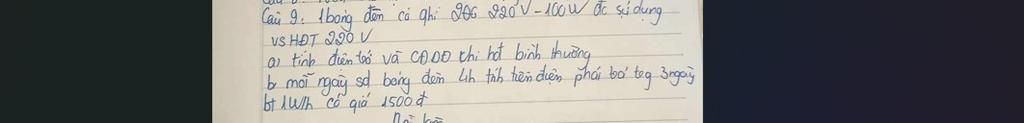 Câu 9: 1 bóng đèn có ghi 220V-100W đc sử dụng
vs HĐT 220V
a) tính điện trở và CĐDĐ khi hđ bình thường
b, mỗi ngày sd bóng đèn 4h tính tiền điện phải trả trog 3 ngày
bt 1Wh có giá 1500đ